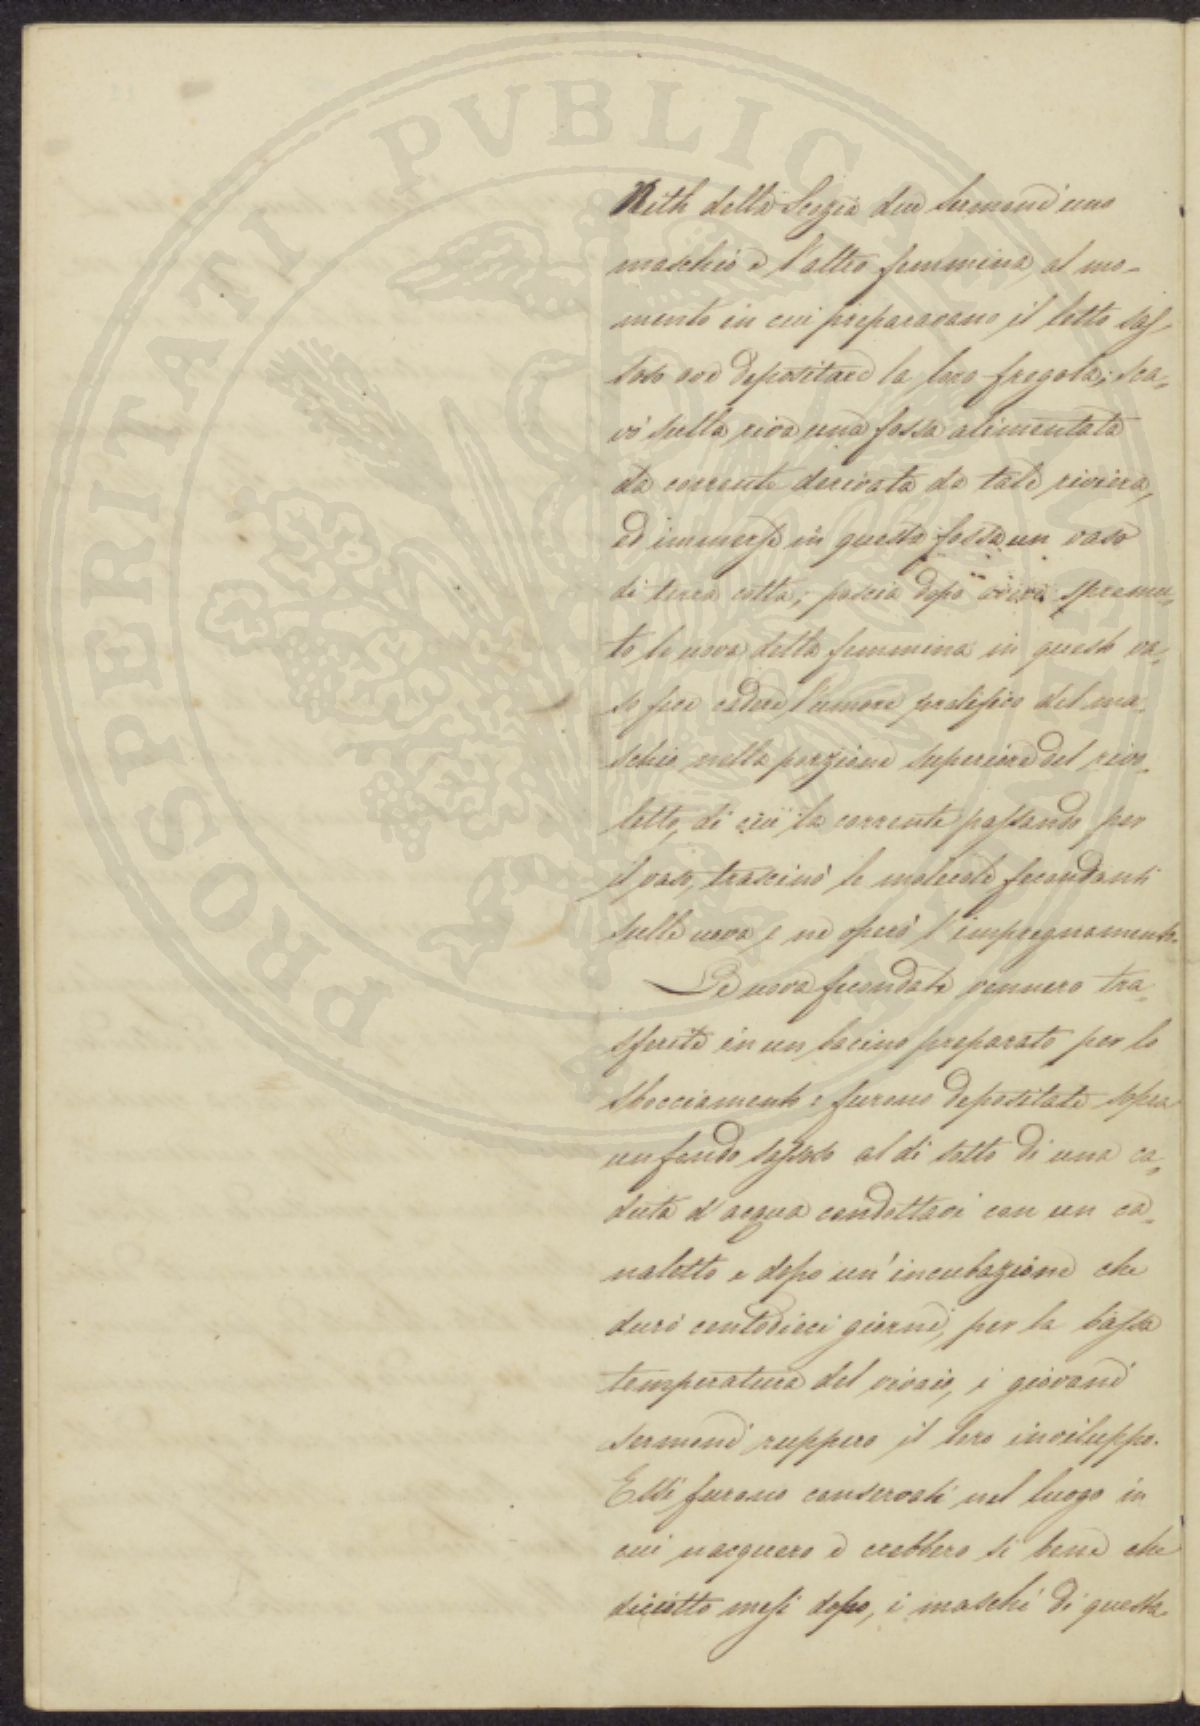 PROSPERITATI PVBLICAE AVGENDAE
Nith della Scozia due sermoni uno
maschio e l'altro femmina, al mo-
mento in cui preparavano il letto sas-
soso ove depositare la loro fregola; sca-
vò sulla riva una fossa alimentata
da corrente derivata da tale riviera,
ed immerse in questa fossa un vaso
di terra cotta; poscia dopo aver spremu-
to le uova della femmina in questo va-
so fece cadere l'umore prolifico del ma-
schio nella porzione superiore del rivo-
letto, di cui la corrente passando per
il vaso, trascinò le molecole fecondanti
sulle uova e ne operò l'impregnamento.
Le uova fecondate vennero tra-
sferite in un bacino preparato per lo
sbocciamento e furono depositate sopra
un fondo sassoso al di sotto di una ca-
duta d'acqua condottavi con un ca-
naletto e dopo un'incubazione che
durò centodieci giorni, per la bassa
temperatura del vivaio, i giovani
sermoni ruppero il loro inviluppo.
Essi furono conservati nel luogo in
cui nacquero e crebbero sì bene che
diciotto mesi dopo, i maschi di questa